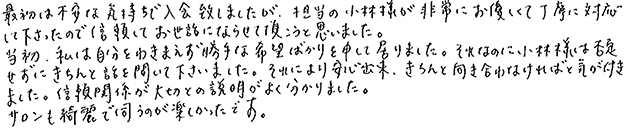 最初は不安な気持ちで入会致しましたが、担当の小林様が非常にお優しくて丁寧に対応
して下さったので信頼してお世話にならせて頂こうと思いました。
当初、私は自分をわきまえず勝手な希望ばかりを申して居りました。それなのに小林様は否定
せずにきちんと話を聞いて下さいました。それにより安心出来、きちんと向き合わなければと気が付き
ました。信頼関係が大切との説明がよく分かりました。
サロンも綺麗で伺うのが楽しかったです。